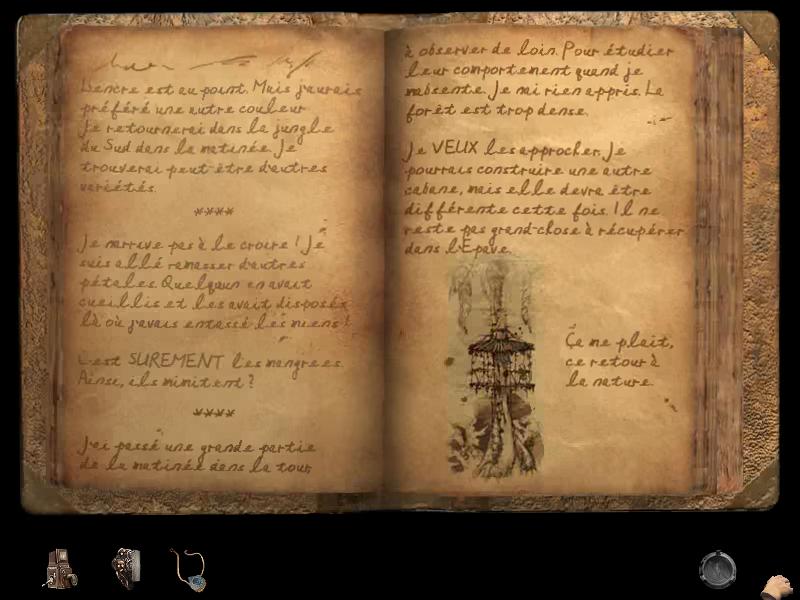 L'encre est au point. Mais j'aurais
préféré une autre couleur
Je retournerai dans la jungle
du Sud dans la matinée. Je
trouverai peut-être d'autres
variétés.
****
Je n'arrive pas à le croire ! Je
suis allé ramasser d'autres
pétales. Quelqu'un en avait
cueillis et les avait disposés
là où j'avais entassé les miens !
C'est SUREMENT les mangrees.
Ainsi, ils m'imitent ?
****
J'ai passé une grande partie
de la matinée dans la tour
à observer de loin. Pour étudier
leur comportement quand je
m'absente. Je n'ai rien appris. La
forêt est trop dense.
Je VEUX les approcher. Je
pourrais construire une autre
cabane, mais elle devra être
différente cette fois. Il ne
reste pas grand-chose à récupérer
dans l'Epave.
Ça me plait,
ce retour à
la nature.